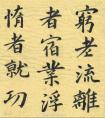 窮老流離
者宿業浮
惰者就功